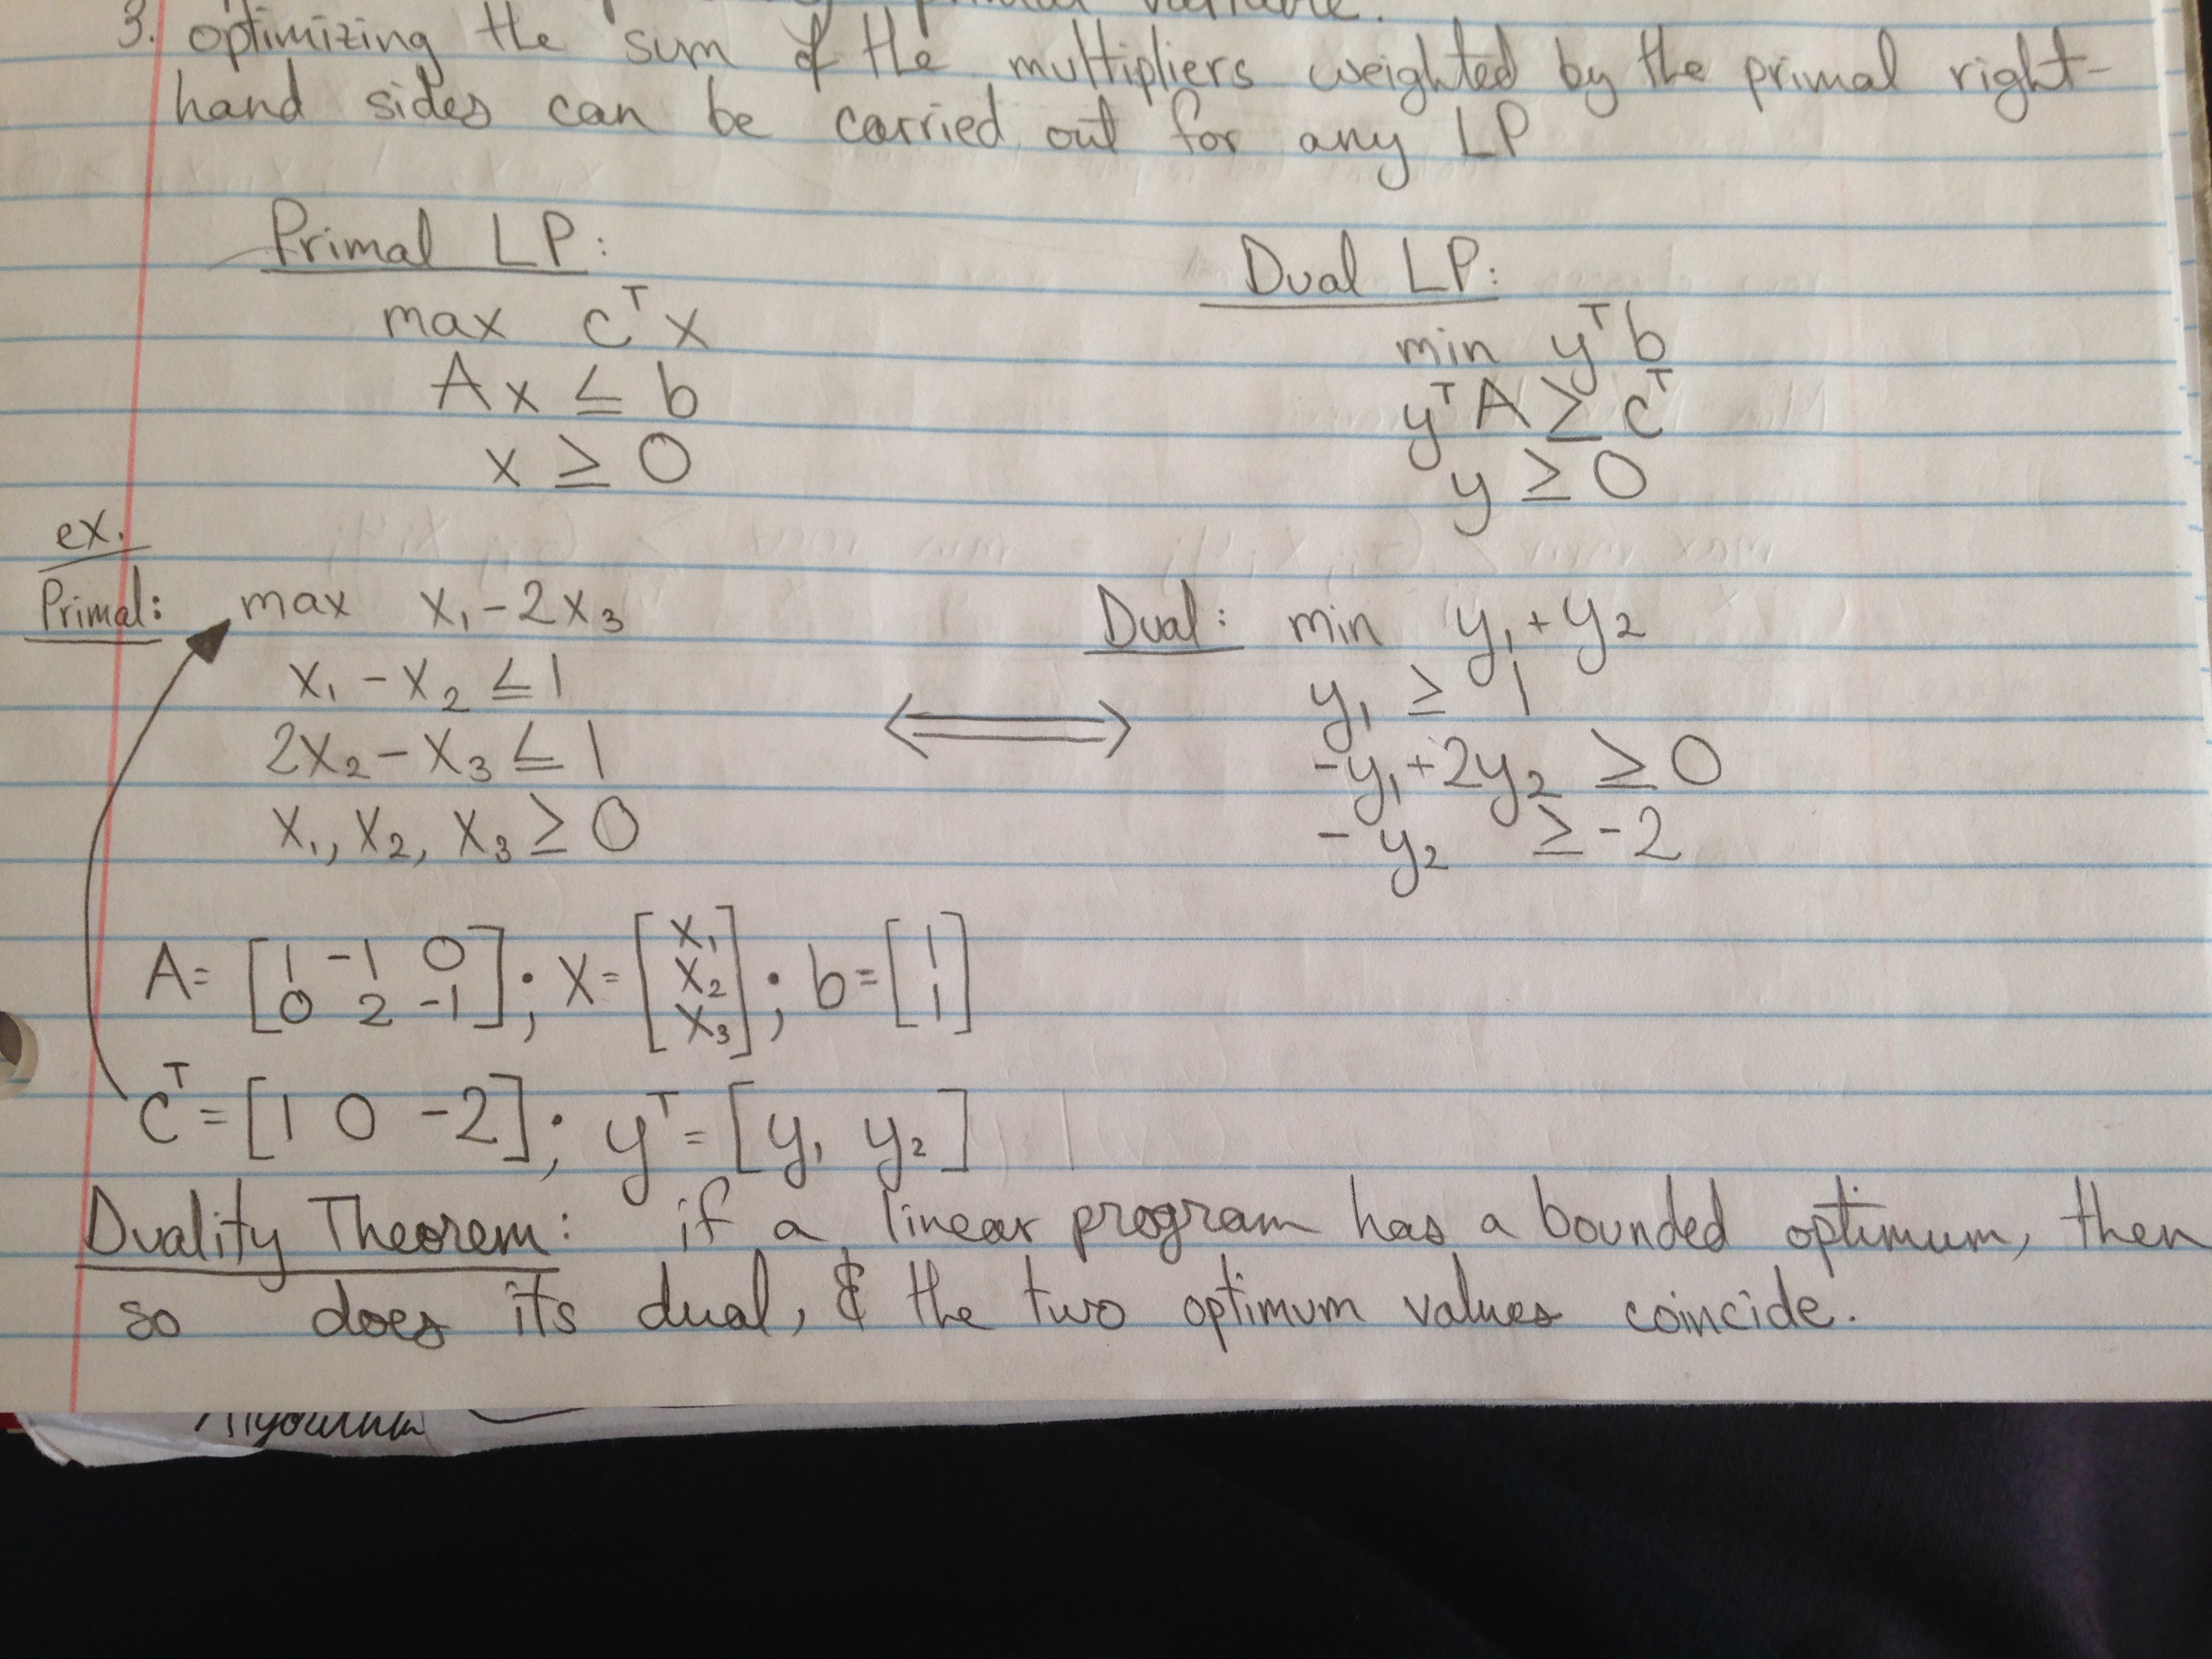 variable.
3. optimizing the sum of the multipliers weighted by the primal right-
hand sides can be carried out for any LP
Primal LP:
max cᵀx
Ax ≤ b
x ≥ 0
Dual LP:
min yᵀb
yᵀA ≥ cᵀ
y ≥ 0
ex.
Primal: max x₁-2x₃
x₁-x₂ ≤ 1
2x₂-x₃ ≤ 1
x₁, x₂, x₃ ≥ 0
⟺
Dual: min y₁+y₂
y₁ ≥ 1
-y₁+2y₂ ≥ 0
-y₂ ≥ -2
A= [1 -1 0; 0 2 -1]; X= [x₁ x₂ x₃]; b= [1 1]
cᵀ= [1 0 -2]; yᵀ= [y₁ y₂]
Duality Theorem: if a linear program has a bounded optimum, then
so does its dual, & the two optimum values coincide.